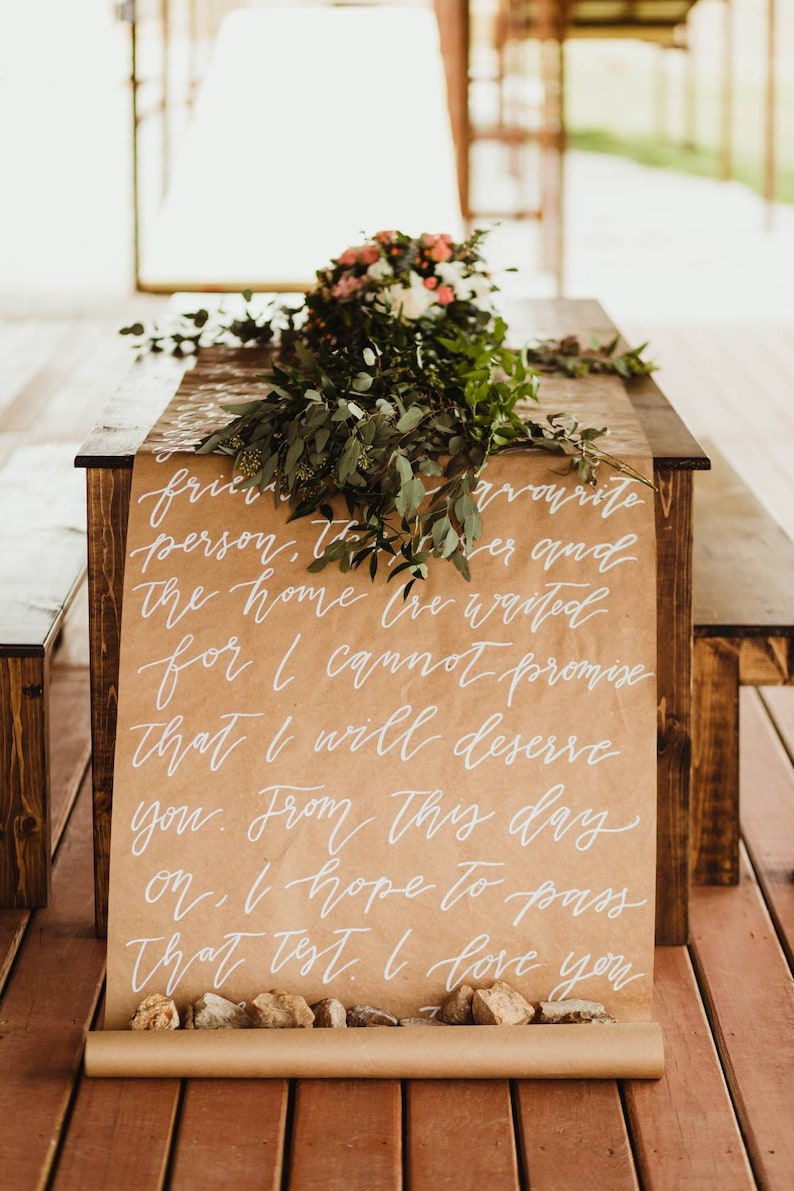 person, and
the home I've waited
for I cannot promise
that I will deserve
you. From this day
on, I hope to pass
that test. I love you